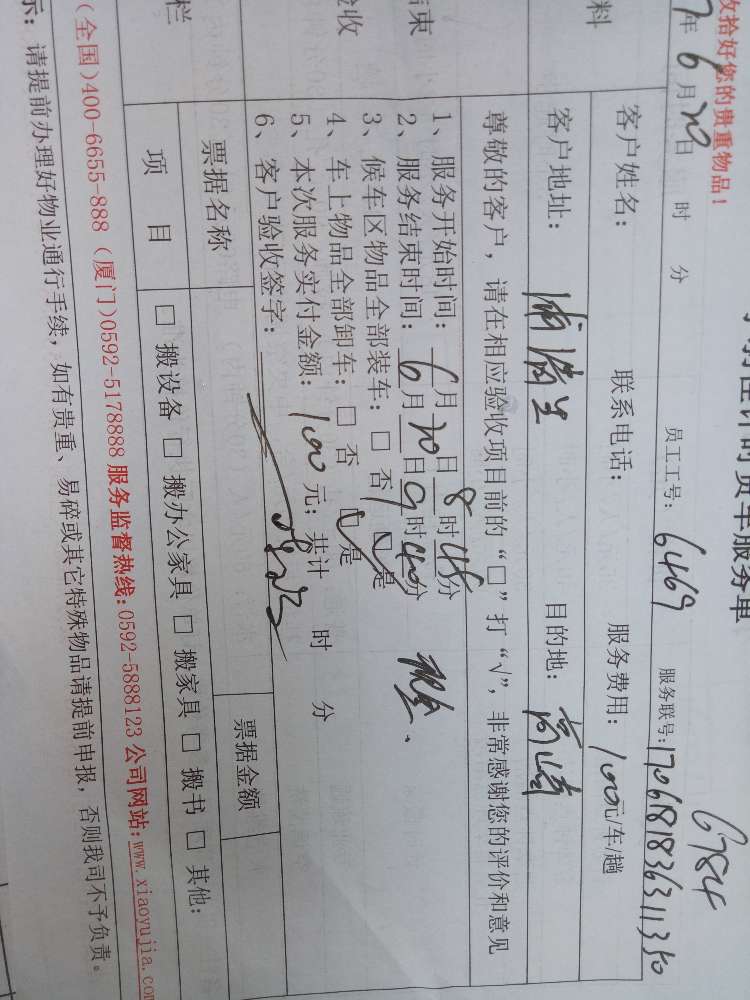 收拾好您的贵重物品！
计时货车服务单
6784
7年6月20日 时 分 员工工号：6469 服务联号：170618183631350
料
客户姓名： 联系电话： 服务费用：100元/车/趟
客户地址： 目的地：高崎
尊敬的客户，请在相应验收项目前的“□”打“√”，非常感谢您的评价和意见
结束
验收
1、服务开始时间：6月20日8时45分
2、服务结束时间：6月20日9时40分 现金、
3、候车区物品全部装车：□否 ☑是
4、车上物品全部卸车：□否 ☑是
5、本次服务实付金额：100元；共计 时 分
6、客户验收签字：
栏
票据名称 票据金额
项 目 □ 搬设备 □ 搬办公家具 □ 搬家具 □ 搬书 □ 其他：
(全国)400-6655-888 (厦门)0592-5178888 服务监督热线:0592-5888123 公司网站:www.xiaoyujia.com
示：请提前办理好物业通行手续，如有贵重、易碎或其它特殊物品请提前申报，否则我司不予负责。